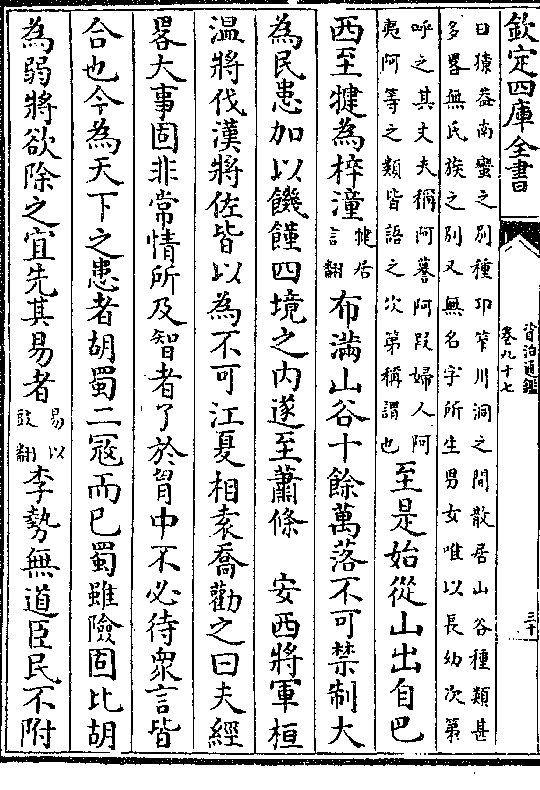 欽定四庫全書
資治通鑑
卷九十七
三十
曰獠葢南蠻之别種卭笮川洞之間散居山谷種類甚
多畧無氏族之别又無名字所生男女唯以長幼次第
呼之其丈夫稱阿謩阿段婦人阿
夷阿等之類皆語之次第稱謂也
至是始從山出自巴
西至犍為梓潼犍居言翻布滿山谷十餘萬落不可禁制大
為民患加以饑饉四境之内遂至蕭條　安西將軍桓
温將伐漢將佐皆以為不可江夏相袁喬勸之曰夫經
畧大事固非常情所及智者了於胷中不必待衆言皆
合也今為天下之患者胡蜀二冦而已蜀雖險固比胡
為弱將欲除之宜先其易者易以豉翻李勢無道臣民不附